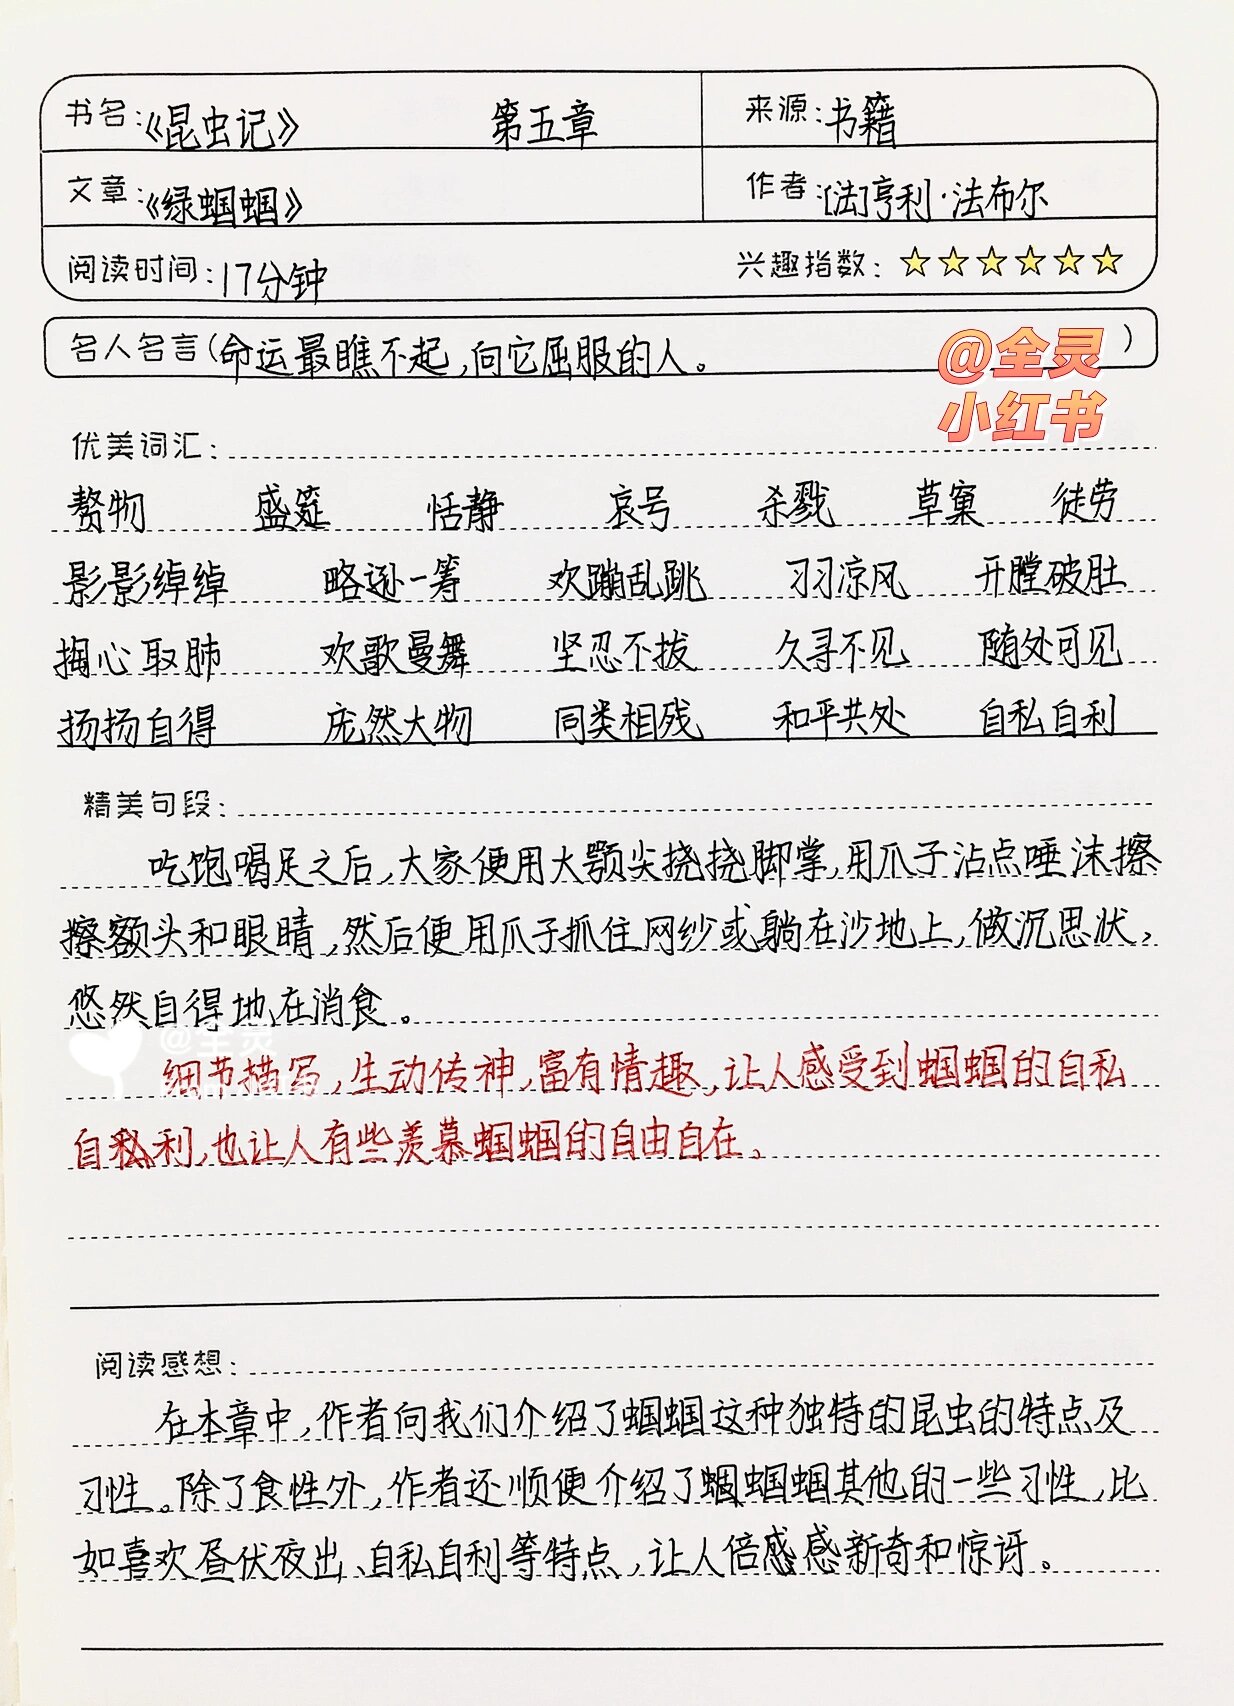 书名:《昆虫记》 第五章 来源:书籍
文章:《绿蝈蝈》 作者:[法]亨利·法布尔
阅读时间:17分钟 兴趣指数:
名人名言(命运最瞧不起,向它屈服的人。)
@全灵
小红书
优美词汇:
赘物 盛筵 恬静 哀号 杀戮 草窠 徒劳
影影绰绰 略逊一筹 欢蹦乱跳 习习凉风 开膛破肚
掏心取肺 欢歌曼舞 坚忍不拔 久寻不见 随处可见
扬扬自得 庞然大物 同类相残 和平共处 自私自利
精美句段:
吃饱喝足之后,大家便用大颚尖挠挠脚掌,用爪子沾点唾沫擦
擦额头和眼睛,然后便用爪子抓住网纱或躺在沙地上,做沉思状,
悠然自得地在消食。
@全灵
细节描写,生动传神,富有情趣,让人感受到蝈蝈的自私
自私利,也让人有些羡慕蝈蝈的自由自在。
阅读感想:
在本章中,作者向我们介绍了蝈蝈这种独特的昆虫的特点及
习性。除了食性外,作者还顺便介绍了蝈蝈蝈其他的一些习性,比
如喜欢昼伏夜出、自私自利等特点,让人倍感感新奇和惊讶。